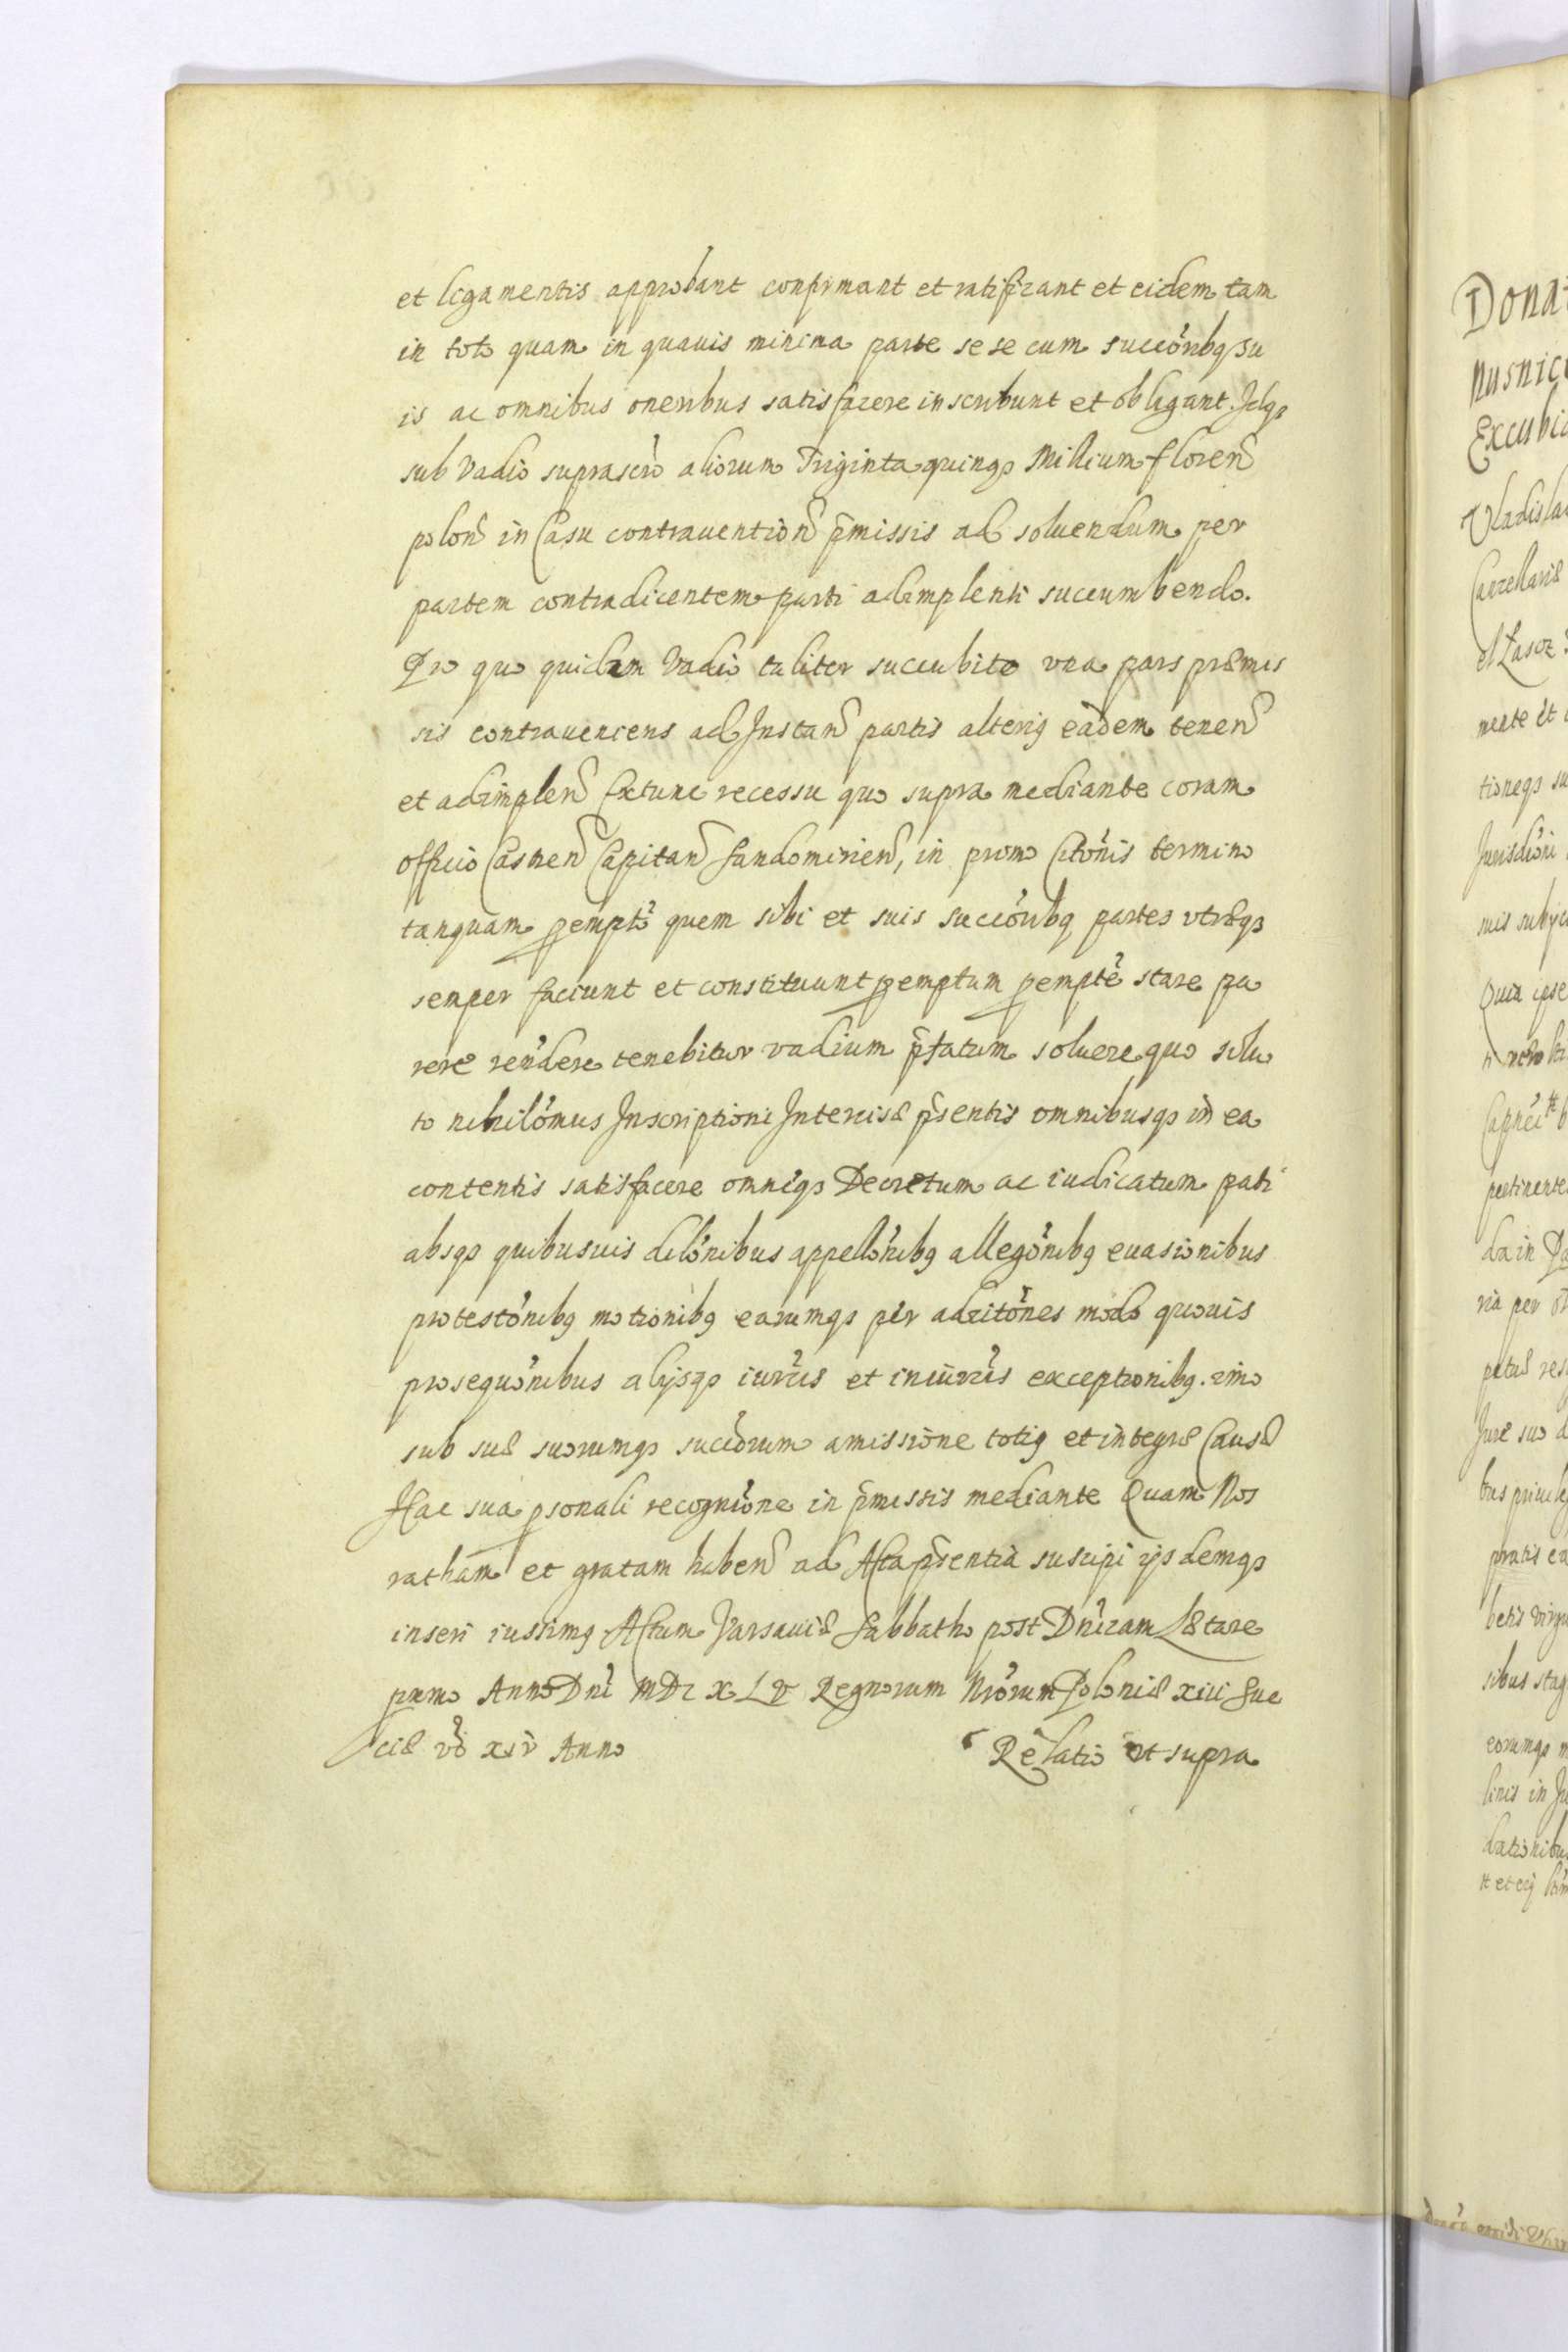 et ligamentis approbant confirmant et ratificant et eidem tam
in toto quam in quauis minima parte sese cum succōribq su
is ac omnibus oneribus satisfacere inscribunt et obligant. Idqȝ
sub vadio suprascrō aliorum Triginta quinqȝ Millium floren
polon in Casu contrauention p̄missis ad soluendum per
partem contradicentem parti adimplenti succumbendo.
Pro quo quidem Vadio taliter succubito vna pars præmis
sis contraueniens ad Instan partis alteriq eadem tenen
et adimplen Extunc recessu quo supra mediante coram
officio Castren Capitan Sandomirien, in primo Citōnis termino
tanquam pempto quem sibi et suis succōribq partes vtræqȝ
semper faciunt et constituunt pemptum pempte stare pa
rere rendere tenebitur vadium p̄fatum soluere quo solu
to nihilōmus Inscriptioni Intercisæ p̄sentis omnibusqȝ in ea
contentis satisfacere omneqȝ Decretum ac iudicatum pati
absqȝ quibusuis dilōnibus appellōnibq allegōnibq euasionibus
protestōnibq motionibq earumqȝ per adcitōnes modo quouis
prosequōnibus alijsqȝ iuris et iniuris exceptionibq. imo
sub suæ suorumqȝ succorum amissione totiq et integræ Causæ
Hac sua psonali recognione in p̄missis mediante Quam Nos
ratham et gratam haben ad Acta p̄sentia suscipi ijsdemqȝ
inseri iussimq Actum Varsauiæ Sabbatho post Dnicam Lætare
primo Anno Dni MDC XLV Regnorum Nrorum Poloniæ xiii Sue
ciæ vo xiv Anno
Relatio vt supra
Donat
Vladisla
Excubi
Cancellariæ
nente et
tioneqȝ su
Jurisdioni
Quia ipse
pertinente
ria per
Jure suo
sibus stag
eorumqȝ
linis in